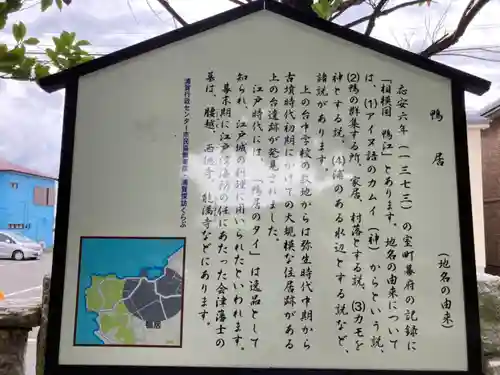 鴨居
（地名の由来）
応安六年（一三七三）の室町幕府の記録に
「相模国 鴨江」とあります。地名の由来について
は、(1)アイヌ語のカムイ（神）からという説、
(2)鴨の群集する所、家居、村落とする説、(3)カモを
神とする説、(4)浦のある水辺とする説など、
諸説があります。
上の台中学校の敷地からは弥生時代中期から
古墳時代初期にかけての大規模な住居跡がある
上の台遺跡が発見されました。
江戸時代には、「鴨居のタイ」は逸品として
知られ、江戸城の料理に用いられたといわれます。
幕末期に江戸湾漁防の任にあたった会津藩士の
墓は、腰越、西徳寺、能満寺などにあります。
浦賀行政センター市民協働事業・浦賀探訪くらぶ
鴨居